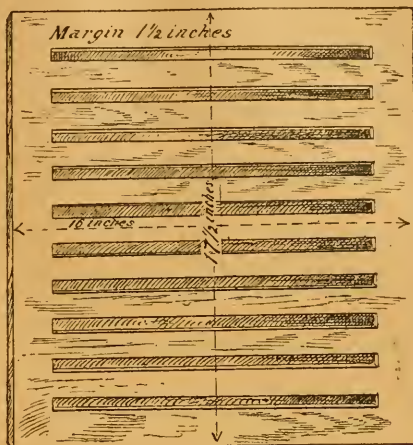 Margin 1½ inches
16 inches
17½ inches